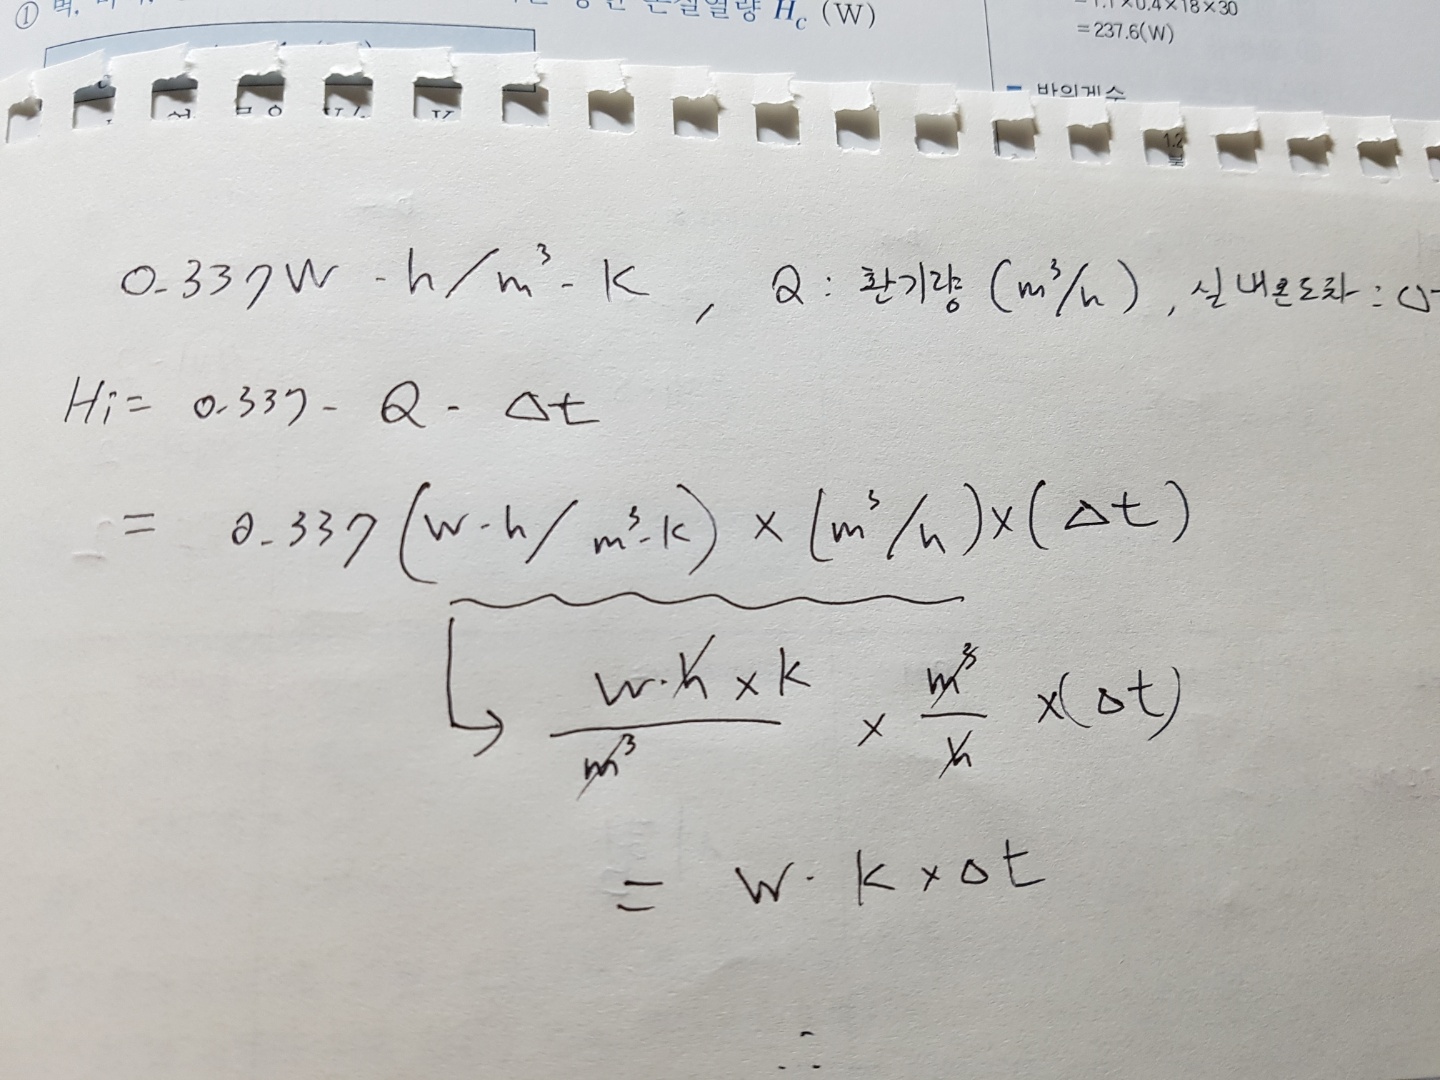 ① 벽, 손실열량 Hc (W)
= 1.1×0.4×18×30
= 237.6(W)
방위계수
1.2
0.337W - h/m³ - K , Q : 환기량 (m³/h) , 실내온도차 :
Hi = 0.337 - Q - Δt
= 0.337 (W·h/m³·K) × (m³/h) × (Δt)
W·h × K / m³ × m³ / h × (Δt)
= W · K × Δt
∴